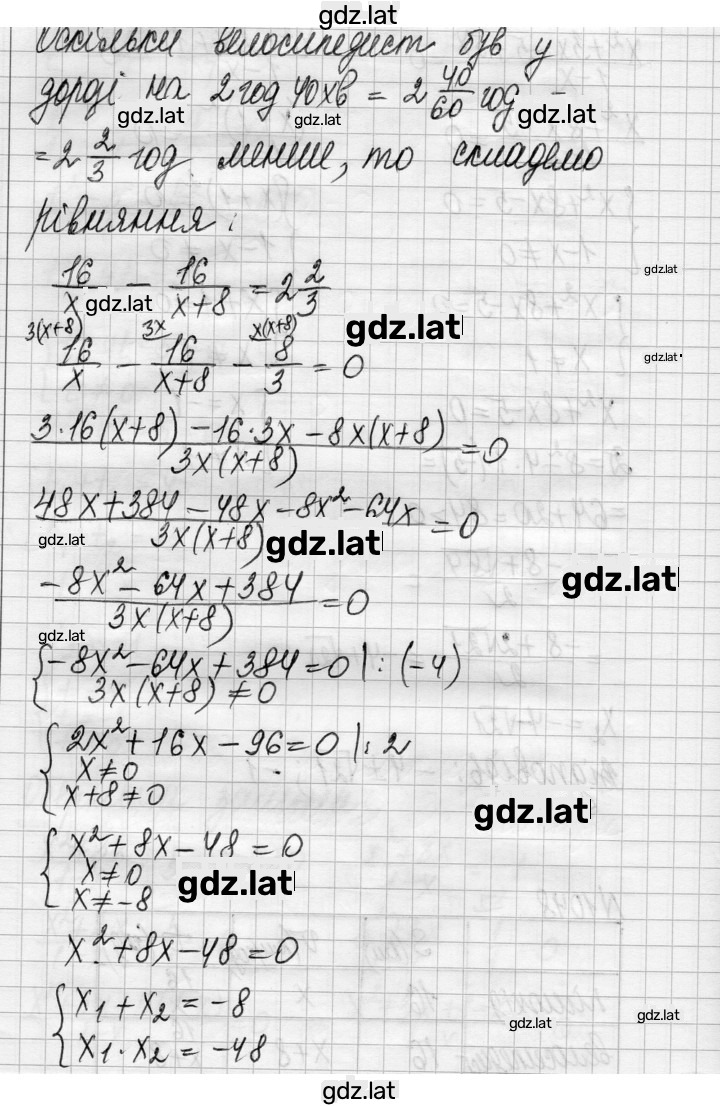 gdz.lat
Оскільки велосипедист був у
дорозі на 2 год 40 хв = 2 40/60 год =
gdz.lat gdz.lat gdz.lat
= 2 2/3 год менше, то складемо
рівняння:
16/x - 16/(x+8) = 2 2/3
gdz.lat gdz.lat
gdz.lat
3(x+8) 3x x(x+8)
16/x - 16/(x+8) - 8/3 = 0
gdz.lat
(3·16(x+8) - 16·3x - 8x(x+8))/(3x(x+8)) = 0
(48x + 384 - 48x - 8x² - 64x)/(3x(x+8)) = 0
gdz.lat gdz.lat
(-8x² - 64x + 384)/(3x(x+8)) = 0
gdz.lat
gdz.lat
{ -8x² - 64x + 384 = 0 |:(-4)
3x(x+8) ≠ 0
{ 2x² + 16x - 96 = 0 |:2
x ≠ 0
x+8 ≠ 0
gdz.lat
{ x² + 8x - 48 = 0
x ≠ 0
x ≠ -8
gdz.lat
x² + 8x - 48 = 0
{ x₁ + x₂ = -8
x₁ · x₂ = -48
gdz.lat gdz.lat
gdz.lat